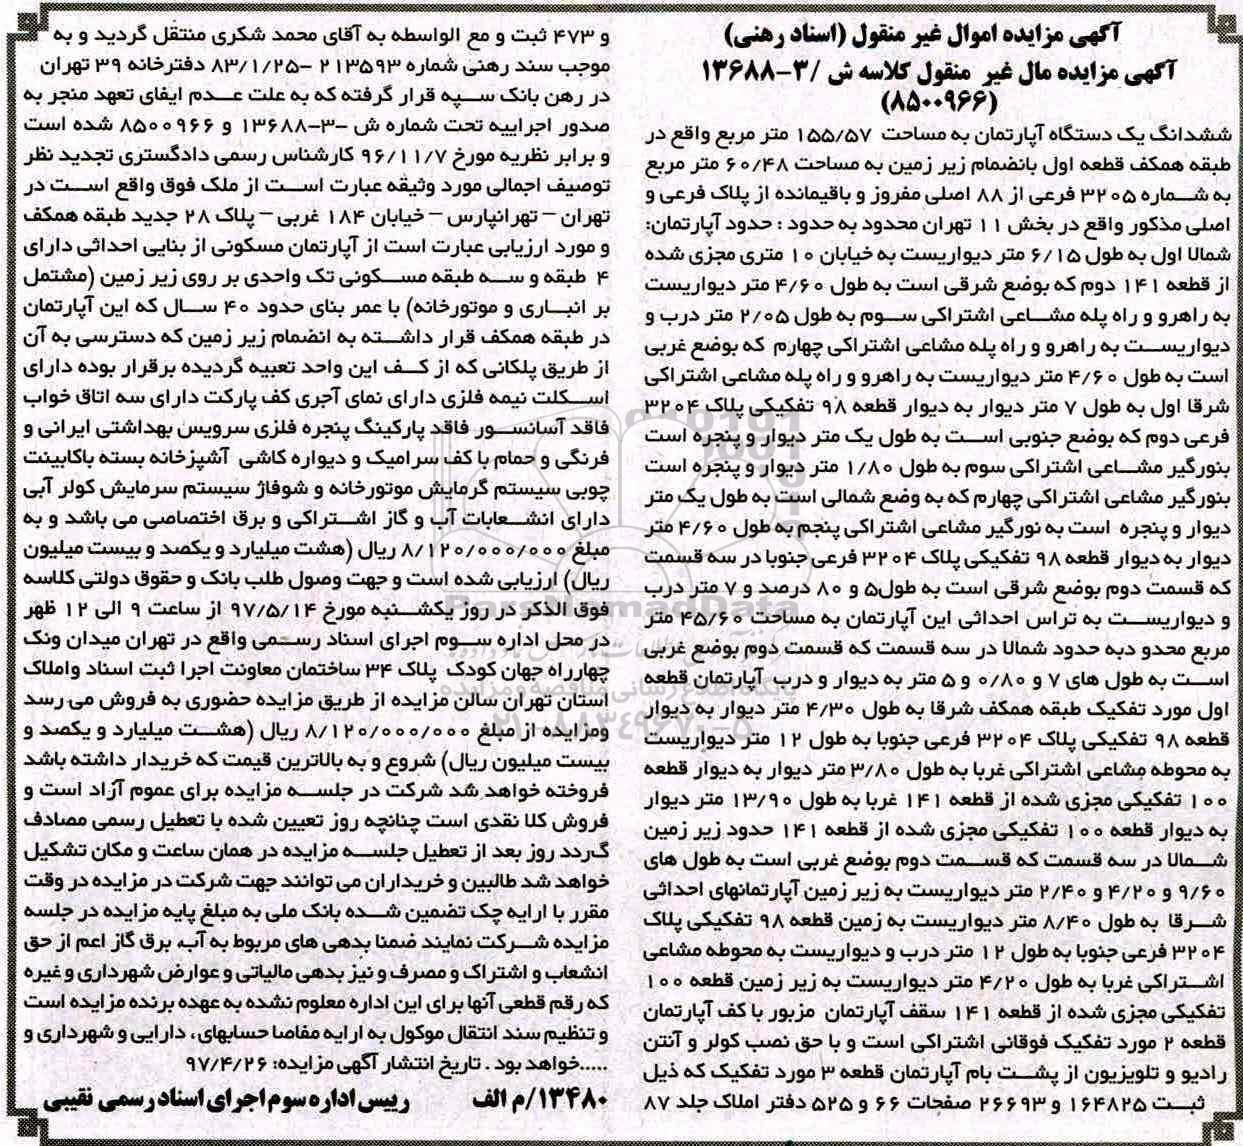 آگهی مزایده اموال غیر منقول (اسناد رهنی)
آگهی مزایده مال غیر منقول کلاسه ش /۳-۱۳۶۸۸
(۸۵۰۰۹۶۶)
ششدانگ یک دستگاه آپارتمان به مساحت ۱۵۵/۵۷ متر مربع واقع در
طبقه همکف قطعه اول بانضمام زیر زمین به مساحت ۶۰/۴۸ متر مربع
به شماره ۳۲۰۵ فرعی از ۸۸ اصلی مفروز و باقیمانده از پلاک فرعی و
اصلی مذکور واقع در بخش ۱۱ تهران محدود به حدود : حدود آپارتمان:
شمالا اول به طول ۶/۱۵ متر دیواریست به خیابان ۱۰ متری مجزی شده
از قطعه ۱۴۱ دوم که بوضع شرقی است به طول ۴/۶۰ متر دیواریست
به راهرو و راه پله مشاعی اشتراکی سوم به طول ۲/۰۵ متر درب و
دیواریست به راهرو و راه پله مشاعی اشتراکی چهارم که بوضع غربی
است به طول ۴/۶۰ متر دیواریست به راهرو و راه پله مشاعی اشتراکی
شرقا اول به طول ۷ متر دیوار به دیوار قطعه ۹۸ تفکیکی پلاک ۳۲۰۴
فرعی دوم که بوضع جنوبی است به طول یک متر دیوار و پنجره است
بنورگیر مشاعی اشتراکی سوم به طول ۱/۸۰ متر دیوار و پنجره است
بنورگیر مشاعی اشتراکی چهارم که به وضع شمالی است به طول یک متر
دیوار و پنجره است به نورگیر مشاعی اشتراکی پنجم به طول ۴/۶۰ متر
دیوار به دیوار قطعه ۹۸ تفکیکی پلاک ۳۲۰۴ فرعی جنوبا در سه قسمت
که قسمت دوم بوضع شرقی است به طول۵ و ۸۰ درصد و ۷ متر درب
و دیواریست به تراس احداثی این آپارتمان به مساحت ۴۵/۶۰ متر
مربع محدو دبه حدود شمالا در سه قسمت که قسمت دوم بوضع غربی
است به طول های ۷ و ۰/۸۰ و ۵ متر به دیوار و درب آپارتمان قطعه
اول مورد تفکیک طبقه همکف شرقا به طول ۴/۳۰ متر دیوار به دیوار
قطعه ۹۸ تفکیکی پلاک ۳۲۰۴ فرعی جنوبا به طول ۱۲ متر دیواریست
به محوطه مشاعی اشتراکی غربا به طول ۳/۸۰ متر دیوار به دیوار قطعه
۱۰۰ تفکیکی مجزی شده از قطعه ۱۴۱ غربا به طول ۱۳/۹۰ متر دیوار
به دیوار قطعه ۱۰۰ تفکیکی مجزی شده از قطعه ۱۴۱ حدود زیر زمین
شمالا در سه قسمت که قسمت دوم بوضع غربی است به طول های
۹/۶۰ و ۴/۲۰ و ۲/۴۰ متر دیواریست به زیر زمین آپارتمانهای احداثی
شرقا به طول ۸/۴۰ متر دیواریست به زمین قطعه ۹۸ تفکیکی پلاک
۳۲۰۴ فرعی جنوبا به طول ۱۲ متر درب و دیواریست به محوطه مشاعی
اشتراکی غربا به طول ۴/۲۰ متر دیواریست به زیر زمین قطعه ۱۰۰
تفکیکی مجزی شده از قطعه ۱۴۱ سقف آپارتمان مزبور با کف آپارتمان
قطعه ۲ مورد تفکیک فوقانی اشتراکی است و با حق نصب کولر و آنتن
رادیو و تلویزیون از پشت بام آپارتمان قطعه ۳ مورد تفکیک که ذیل
ثبت ۱۶۴۸۲۵ و ۲۶۶۹۳ صفحات ۶۶ و ۵۲۵ دفتر املاک جلد ۸۷
و ۴۷۳ ثبت و مع الواسطه به آقای محمد شکری منتقل گردید و به
موجب سند رهنی شماره ۲۱۳۵۹۳ -۸۳/۱/۲۵ دفترخانه ۳۹ تهران
در رهن بانک سپه قرار گرفته که به علت عدم ایفای تعهد منجر به
صدور اجراییه تحت شماره ش -۳-۱۳۶۸۸ و ۸۵۰۰۹۶۶ شده است
و برابر نظریه مورخ ۹۶/۱۱/۷ کارشناس رسمی دادگستری تجدید نظر
توصیف اجمالی مورد وثیقه عبارت است از ملک فوق واقع است در
تهران – تهرانپارس – خیابان ۱۸۴ غربی – پلاک ۲۸ جدید طبقه همکف
و مورد ارزیابی عبارت است از آپارتمان مسکونی از بنایی احداثی دارای
۴ طبقه و سه طبقه مسکونی تک واحدی بر روی زیر زمین (مشتمل
بر انباری و موتورخانه) با عمر بنای حدود ۴۰ سال که این آپارتمان
در طبقه همکف قرار داشته به انضمام زیر زمین که دسترسی به آن
از طریق پلکانی که از کف این واحد تعبیه گردیده برقرار بوده دارای
اسکلت نیمه فلزی دارای نمای آجری کف پارکت دارای سه اتاق خواب
فاقد آسانسور فاقد پارکینگ پنجره فلزی سرویس بهداشتی ایرانی و
فرنگی و حمام با کف سرامیک و دیواره کاشی آشپزخانه بسته باکابینت
چوبی سیستم گرمایش موتورخانه و شوفاژ سیستم سرمایش کولر آبی
دارای انشعابات آب و گاز اشتراکی و برق اختصاصی می باشد و به
مبلغ ۸/۱۲۰/۰۰۰/۰۰۰ ریال (هشت میلیارد و یکصد و بیست میلیون
ریال) ارزیابی شده است و جهت وصول طلب بانک و حقوق دولتی کلاسه
فوق الذکر در روز یکشنبه مورخ ۹۷/۵/۱۴ از ساعت ۹ الی ۱۲ ظهر
در محل اداره سوم اجرای اسناد رسمی واقع در تهران میدان ونک
چهارراه جهان کودک پلاک ۳۴ ساختمان معاونت اجرا ثبت اسناد واملاک
استان تهران سالن مزایده از طریق مزایده حضوری به فروش می رسد
ومزایده از مبلغ ۸/۱۲۰/۰۰۰/۰۰۰ ریال (هشت میلیارد و یکصد و
بیست میلیون ریال) شروع و به بالاترین قیمت که خریدار داشته باشد
فروخته خواهد شد شرکت در جلسه مزایده برای عموم آزاد است و
فروش کلا نقدی است چنانچه روز تعیین شده با تعطیل رسمی مصادف
گردد روز بعد از تعطیل جلسه مزایده در همان ساعت و مکان تشکیل
خواهد شد طالبین و خریداران می توانند جهت شرکت در مزایده در وقت
مقرر با ارایه چک تضمین شده بانک ملی به مبلغ پایه مزایده در جلسه
مزایده شرکت نمایند ضمنا بدهی های مربوط به آب، برق گاز اعم از حق
انشعاب و اشتراک و مصرف و نیز بدهی مالیاتی و عوارض شهرداری و غیره
که رقم قطعی آنها برای این اداره معلوم نشده به عهده برنده مزایده است
و تنظیم سند انتقال موکول به ارایه مفاصا حسابهای، دارایی و شهرداری و
.....خواهد بود . تاریخ انتشار آگهی مزایده: ۹۷/۴/۲۶
۱۳۴۸۰/م الف رییس اداره سوم اجرای اسناد رسمی نقیبی
ParsNamadData
پایگاه اطلاع رسانی مناقصه و مزایده
۰۲۱-۸۸۳۴۹۶۷۰-۵